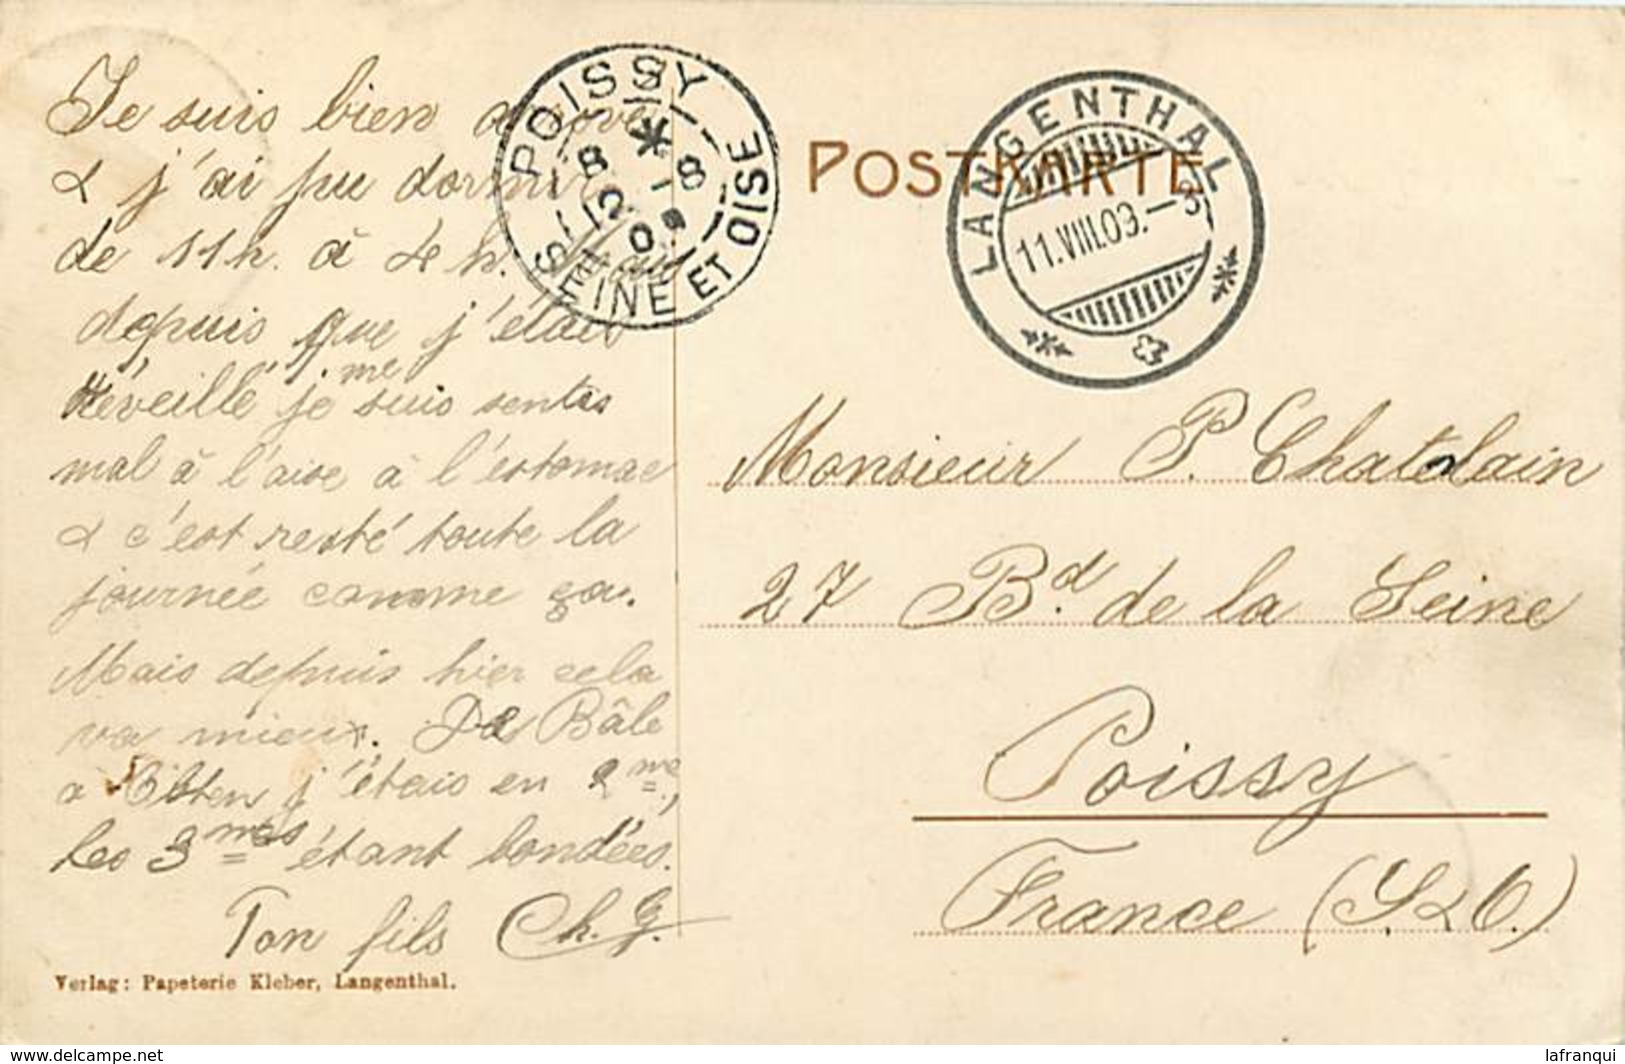 Je suis bien arrivé
& j'ai pu dormir
de 11h. à 4 h. Mais
depuis que j'étais
Réveillé je me suis sentis
mal à l'aise à l'estomac
& c'est resté toute la
journée comme ça.
Mais depuis hier cela
va mieux. De Bâle
à Olten j'étais en 2me,
les 3mes étant bondées.
Ton fils Ch. G.
Verlag: Papeterie Kleber, Langenthal.
POISSY
8 * 12 -8 09
SEINE ET OISE
POSTKARTE
LANGENTHAL
11.VIII.09.-8
Monsieur P. Chatelain
27 Bd. de la Seine
Poissy
France (S&O.)
www.delcampe.net
lafranqui